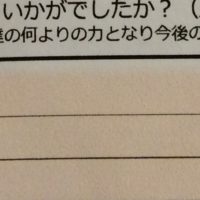 いかがでしたか?(
の何よりの力となり今後の